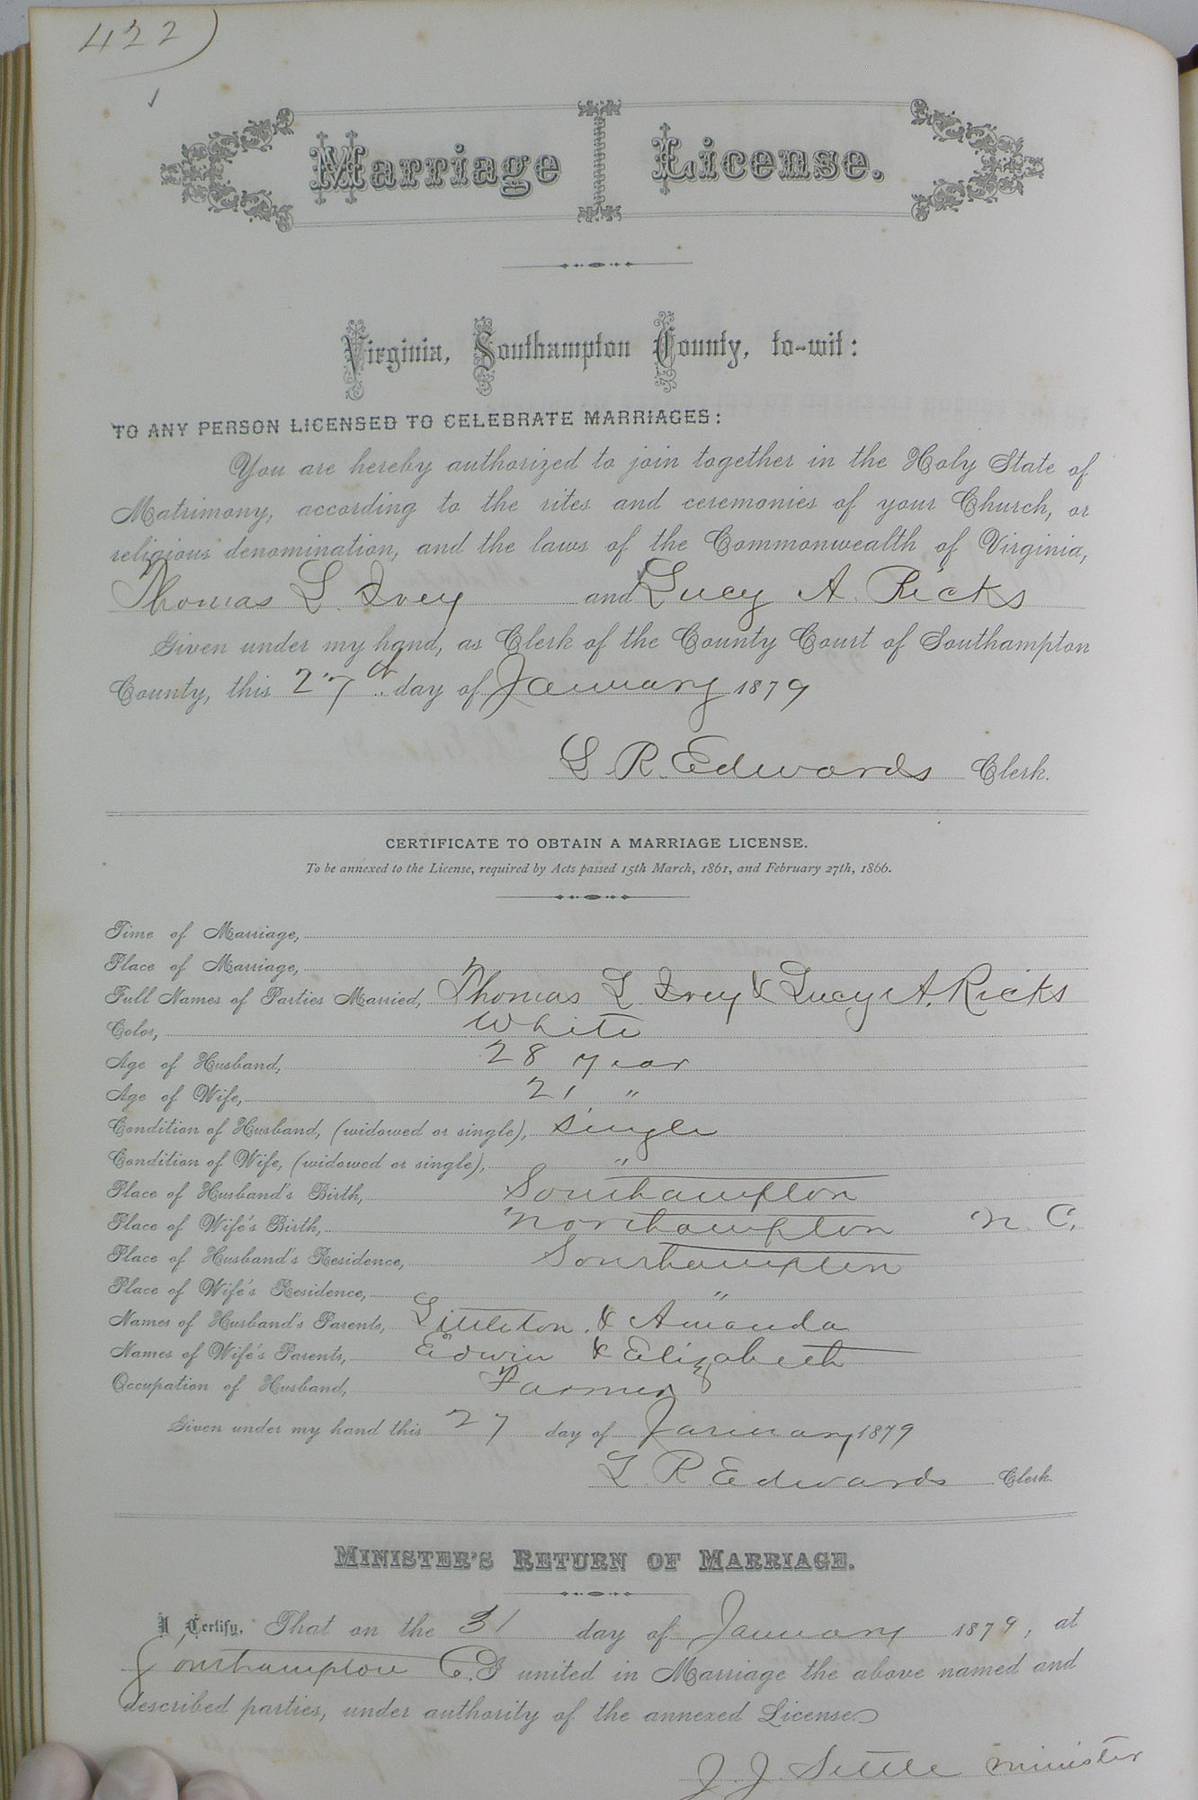 422)
Marriage License.
Virginia, Southampton County, to-wit:
TO ANY PERSON LICENSED TO CELEBRATE MARRIAGES:
You are hereby authorized to join together in the Holy State of
Matrimony, according to the rites and ceremonies of your Church, or
religious denomination, and the laws of the Commonwealth of Virginia,
Thomas L. Ivey and Lucy A. Ricks
Given under my hand, as Clerk of the County Court of Southampton
County, this 27th day of January 1879
L. R. Edwards Clerk.
CERTIFICATE TO OBTAIN A MARRIAGE LICENSE.
To be annexed to the License, required by Acts passed 15th March, 1861, and February 27th, 1866.
Time of Marriage,
Place of Marriage,
Full Names of Parties Married, Thomas L. Ivey & Lucy A. Ricks
Color, White
Age of Husband, 28 year
Age of Wife, 21 "
Condition of Husband, (widowed or single), Single
Condition of Wife, (widowed or single), "
Place of Husband's Birth, Southampton
Place of Wife's Birth, Northampton N. C.
Place of Husband's Residence, Southampton
Place of Wife's Residence, "
Names of Husband's Parents, Littleton & Amanda
Names of Wife's Parents, Edwin & Elizabeth
Occupation of Husband, Farmer
Given under my hand this 27 day of January 1879
L. R. Edwards Clerk.
MINISTER'S RETURN OF MARRIAGE.
I Certify, That on the 31 day of January 1879, at
Southampton Co. I united in Marriage the above named and
described parties, under authority of the annexed License
J. J. Settle minister